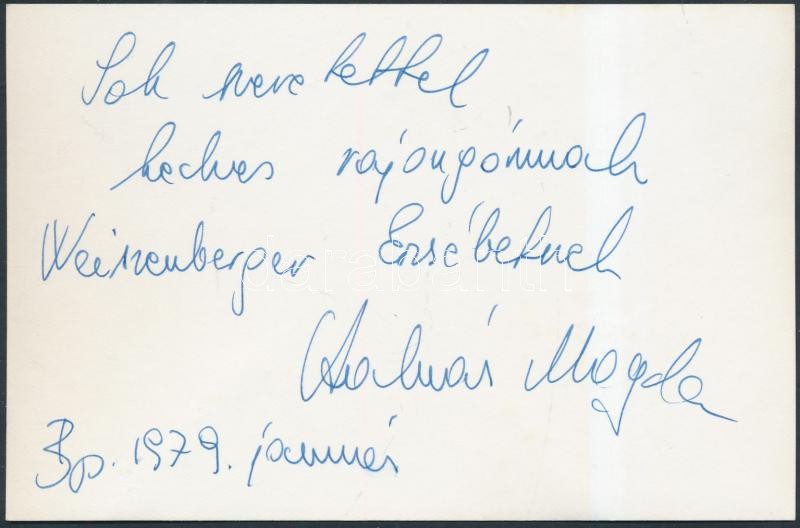 Sok szeretettel
kedves rajongómnak
Weiszenberger Erzsébetnek
Kalmár Magda
Bp. 1979. január